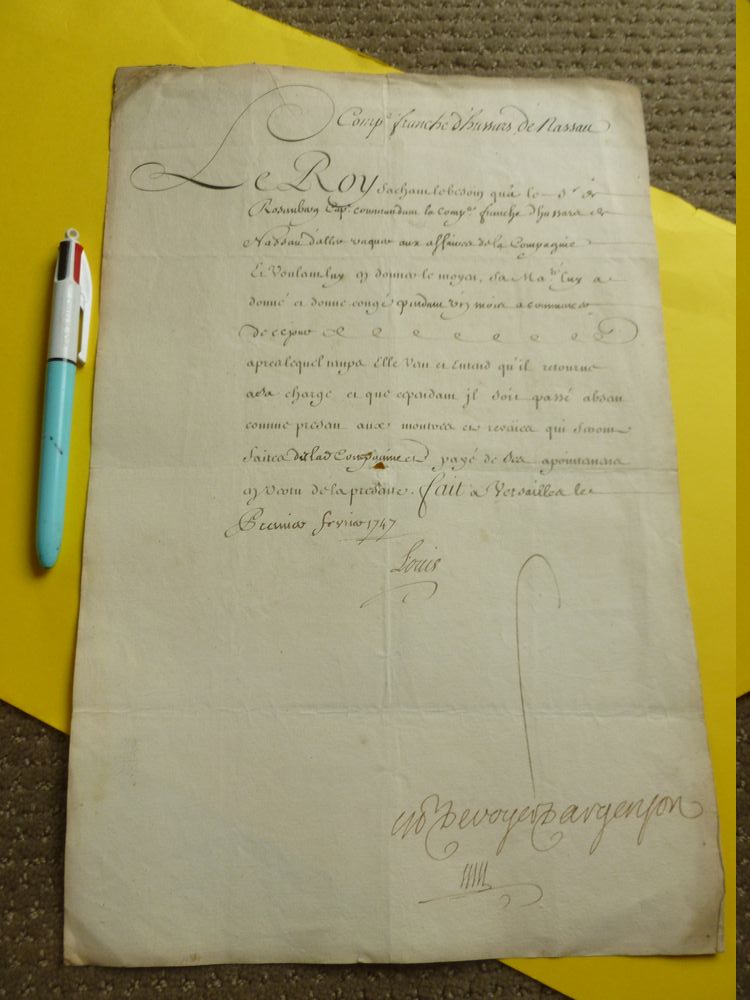 Comp.e franche d'hussars de Nassau
Le Roy sachant le besoin qu'a le S.r de
Rosenberg Cap.e commandant la Comp.e franche d'hussars de
Nassau d'aller vaquer aux affaires de la Compagnie
Et Voulant luy en donner le moyen, Sa Ma.té luy a
donné et donne congé pendant six mois a commencer
de ce jour
apres lequel temps Elle Veut et Entend qu'il retourne
a sa charge et que cependant jl soit passé absent
comme present aux montres et reveües qui seront
faites de lad. Compagnie et payé de ses apointemens
en Vertu de la presente. fait a Versailles le
Premier fevrier 1747
Louis
De voyer D'argenson